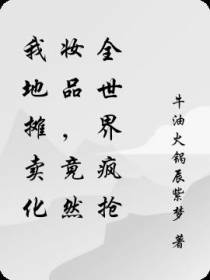 我地摊卖化
妆品，竟然
全世界疯抢
牛油火锅辰紫梦 著